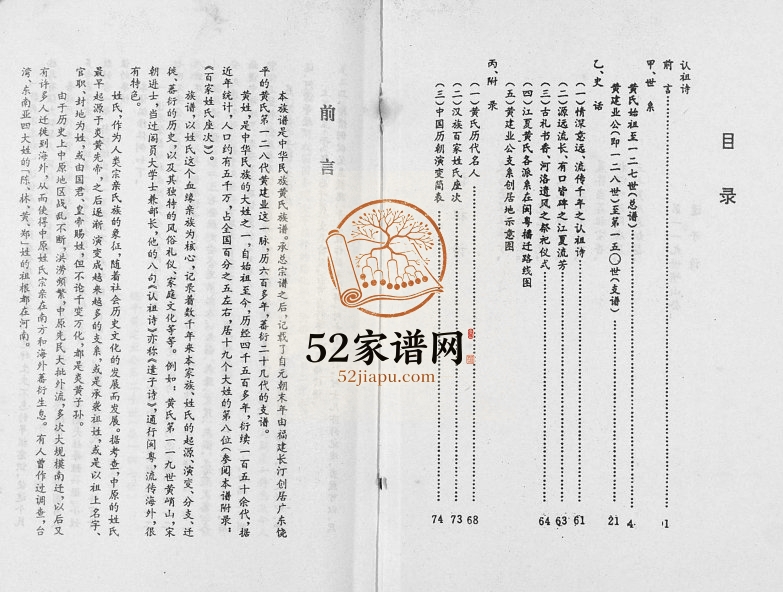 目录
认祖诗
前言 1
甲、世系
黄氏始祖至一二七世(总谱) 4
黄建业公(即一二八世)至第一五〇世(支谱) 21
乙、史话
(一)情深意远、流传千年之认祖诗 61
(二)源远流长、有口皆碑之江夏流芳 63
(三)古礼书香、河洛遗风之祭祀仪式 64
(四)江夏黄氏各派系在闽粤播迁路线图
(五)黄建业公支系创居地示意图
丙、附录
(一)黄氏历代名人 68
(二)汉族百家姓氏座次 73
(三)中国历朝演变简表 74
前言
本族谱是中华民族黄氏族谱。承总宗谱之后,记载了自元朝末年由福建长汀创居广东饶
平的黄氏第一二八代黄建业这一脉,历六百多年,蕃衍二十几代的支谱。
黄姓,是中华民族的大姓之一,自始祖至今,历经四千五百多年,衍续一百五十余代,据
近年统计,人口约有五千万,占全国百分之五左右,居十九个大姓的第八位(参阅本谱附录:
《百家姓氏座次》)。
族谱,以姓氏这个血缘亲族为核心,记录着数千年来本家族、姓氏的起源、演变、分支、迁
徙、蕃衍的历史,以及其独特的风俗礼仪、家庭文化等等。例如:黄氏第一一九世黄峭山,宋
朝进士,当过阁员大学士兼部长,他的八句《认祖诗》亦称《遣子诗》,通行闽粤,流传海外,很
有特色。
姓氏,作为人类宗亲氏族的象征,随着社会历史文化的发展而发展。据考查,中原的姓氏
最早起源于炎黄先帝,之后逐渐演变成越来越多的支系,或是承袭祖姓,或是以祖上名字、
官职、封地为姓,或由国君、皇帝赐姓,但不论千变万化,都是炎黄子孙。
由于历史上中原地区战乱不断,洪涝频繁,中原先民大批外流,多次大规模南迁,以后又
有许多人迁徙到海外,从而使得中原姓氏宗亲在南方和海外蕃衍生息。有人曾作过调查,台
湾、东南亚四大姓的“陈、林、黄、郑”姓的祖根都在河南。
52家谱网
52jiapu.com